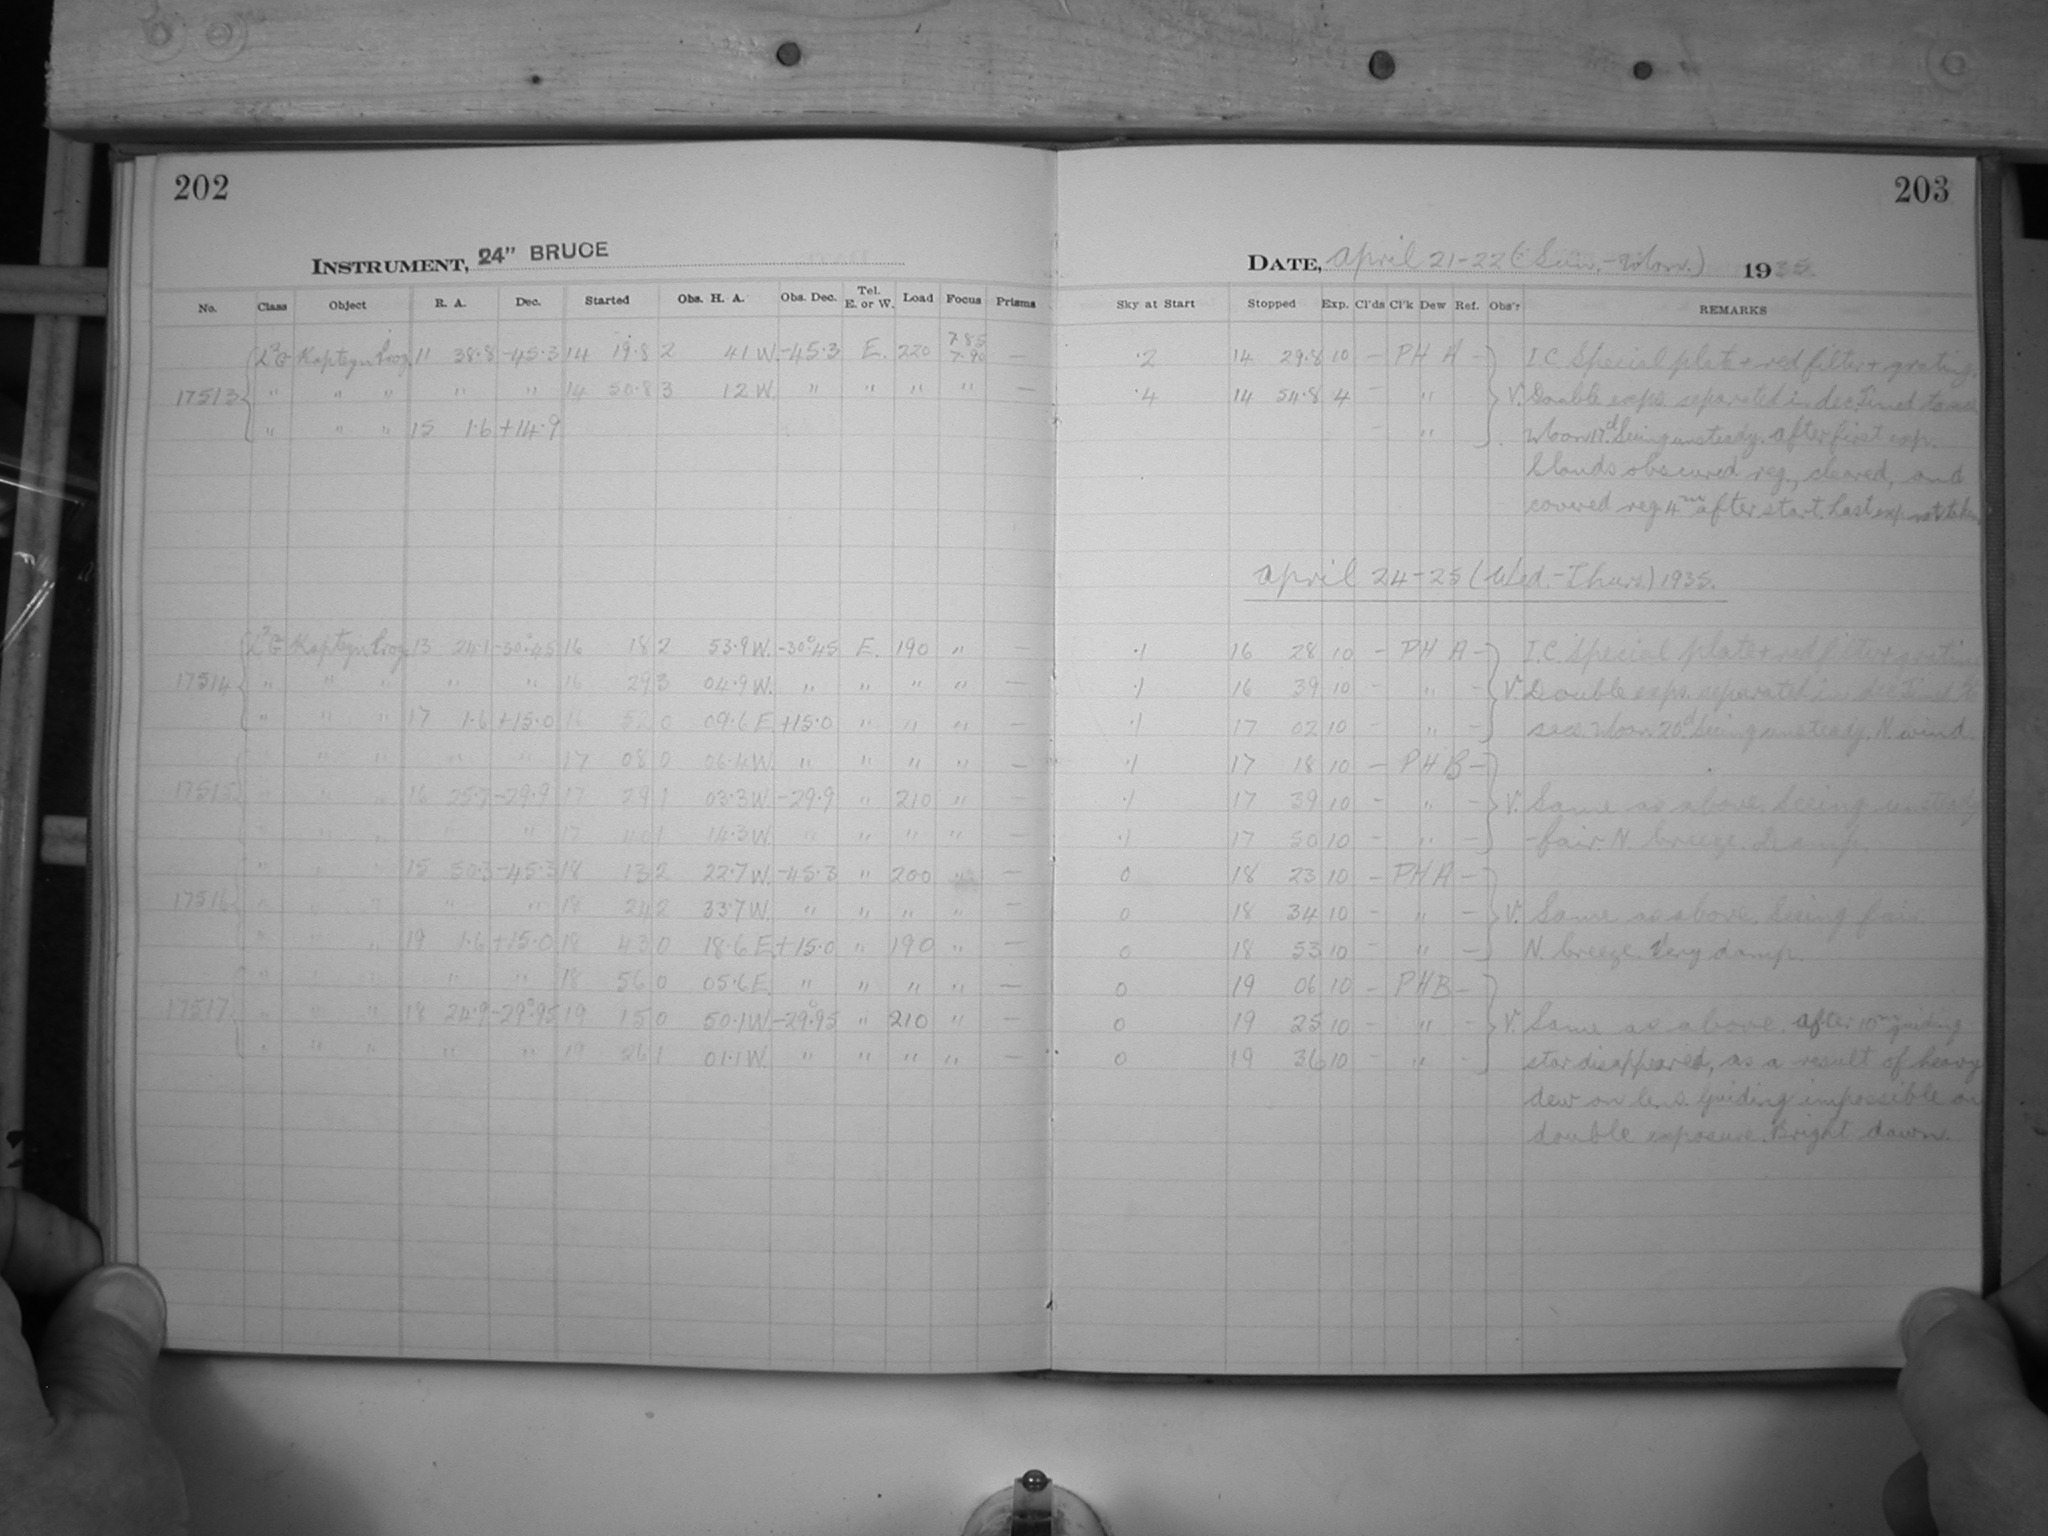 202
203
INSTRUMENT, 24" BRUCE
DATE, April 21-22 (Sun.-Mon.) 1935.
No. Class Object R. A. Dec. Started Obs. H. A. Obs. Dec. Tel. E. or W. Load Focus Prisms Sky at Start Stopped Exp. Cl'ds Cl'k Dew Ref. Obs'r REMARKS
Kapteyn Prog. 11 38.8 -45.3 14 19.8 2 41 W. -45.3 E. 220 7.85 7.90 — .2 14 29.8 10 — PH A — I.C. Special plate + red filter + grating.
17513 " " " " " 14 50.8 3 12 W. " " " " — .4 14 54.8 4 — " V. Double exps. separated in dec.
" " " 15 1.6 +14.9 " Moon 17d. Seeing unsteady. After first exp.
Clouds obscured reg., cleared, and
covered reg. 4m after start. Last exp. not taken
April 24-25 (Wed.-Thurs.) 1935.
Kapteyn Prog. 13 24.1 -30°.45 16 18 2 53.9 W. -30°.45 E. 190 " — .1 16 28 10 — PH A — I.C. Special plate + red filter + grating
17514 " " " " " 16 29 3 04.9 W. " " " " — .1 16 39 10 — " — V. Double exps. separated in dec.
" " " 17 1.6 +15.0 16 52 0 09.6 E. +15.0 " " " — .1 17 02 10 — " — secs. Moon 20d. Seeing unsteady. N. wind.
" " " " " 17 08 0 06.4 W. " " " " — .1 17 18 10 — PH B —
17515 " " " 16 25.7 -29.9 17 29 1 03.3 W. -29.9 " 210 " — .1 17 39 10 — " — V. Same as above. Seeing unsteady
" " " " " 17 40 1 14.3 W. " " " " — .1 17 50 10 — " — -fair. N. breeze. Damp.
" " " 15 50.3 -45.3 18 13 2 22.7 W. -45.3 " 200 " — 0 18 23 10 — PH A —
17516 " " " " " 18 24 2 33.7 W. " " " " — 0 18 34 10 — " — V. Same as above. Seeing fair.
" " " 19 1.6 +15.0 18 43 0 18.6 E. +15.0 " 190 " — 0 18 53 10 — " — N. breeze. Very damp.
" " " " " 18 56 0 05.6 E. " " " " — 0 19 06 10 — PH B —
17517 " " " 18 24.9 -29°.95 19 15 0 50.1 W. -29°.95 " 210 " — 0 19 25 10 — " — V. Same as above. After 10m guiding
" " " " " 19 26 1 01.1 W. " " " " — 0 19 36 10 — " — star disappeared, as a result of heavy
dew on lens. Guiding impossible on
double exposure. Bright dawn.